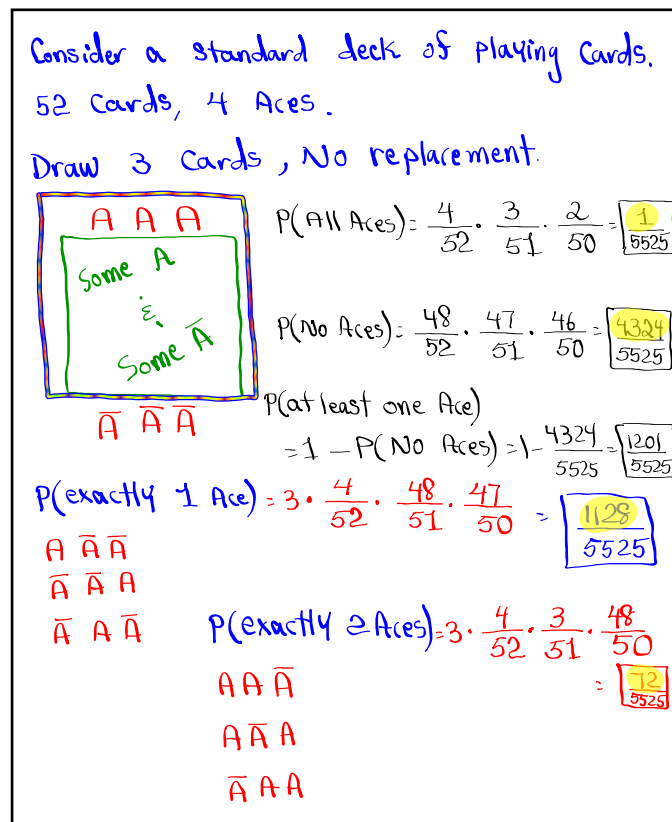 Consider a standard deck of playing cards.
52 Cards, 4 Aces.
Draw 3 Cards, No replacement.
A A A
Some A
&
Some A̅
A̅ A̅ A̅
P(All Aces) = 4/52 · 3/51 · 2/50 = 1/5525
P(No Aces) = 48/52 · 47/51 · 46/50 = 4324/5525
P(at least one Ace)
= 1 - P(No Aces) = 1 - 4324/5525 = 1201/5525
P(exactly 1 Ace) = 3 · 4/52 · 48/51 · 47/50 = 1128/5525
A A̅ A̅
A̅ A̅ A
A̅ A A̅
P(exactly 2 Aces) = 3 · 4/52 · 3/51 · 48/50
= 72/5525
A A A̅
A A̅ A
A̅ A A